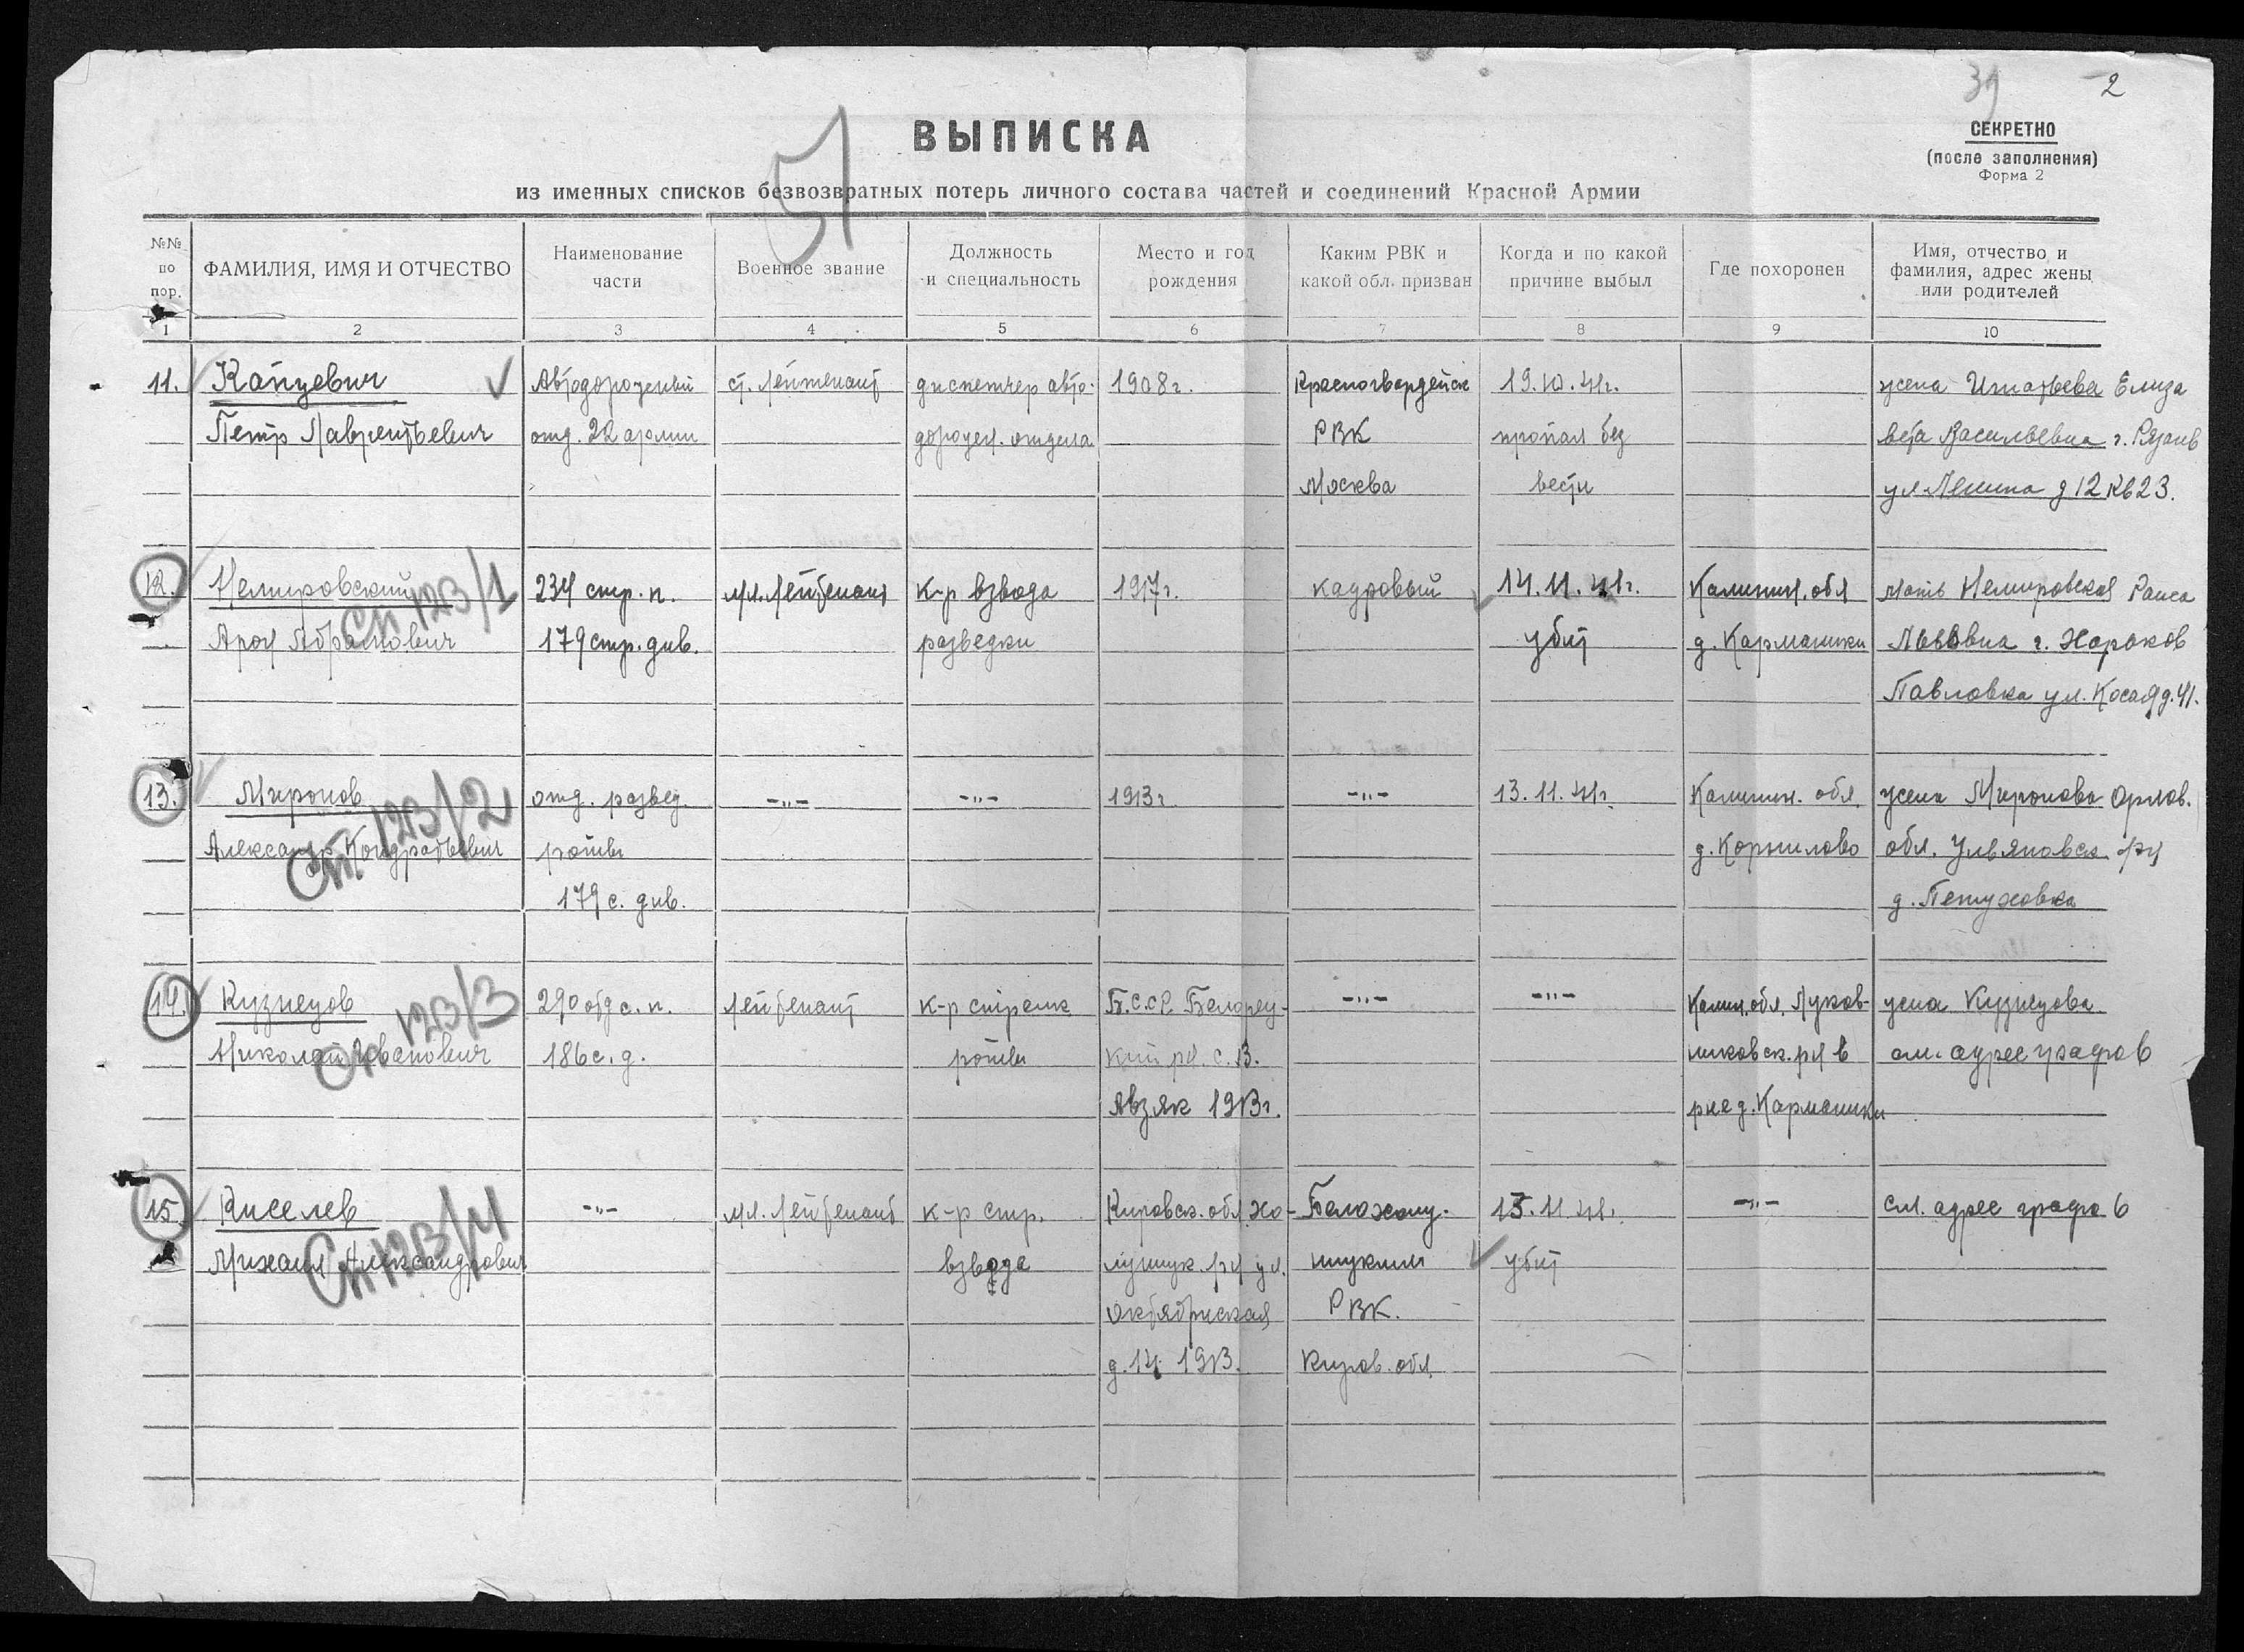 39 2
ВЫПИСКА
СЕКРЕТНО
(после заполнения)
Форма 2
из именных списков безвозвратных потерь личного состава частей и соединений Красной Армии
51
№№ по пор.
ФАМИЛИЯ, ИМЯ И ОТЧЕСТВО
Наименование части
Военное звание
Должность и специальность
Место и год рождения
Каким РВК и какой обл. призван
Когда и по какой причине выбыл
Где похоронен
Имя, отчество и фамилия, адрес жены или родителей
1 2 3 4 5 6 7 8 9 10
11. Капцевич Автодорожный ст. лейтенант диспетчер авто- 1908 г. Красногвардейск 19.10.41г. жена Игнатьева Елиза
Петр Лаврентьевич отд. 22 армии дорожн. отдела РВК пропал без вета Васильевна г. Рязань
Москва вести ул Ленина д 12 кв 23.
12. Немировский 234 стр. п. мл. лейтенант к-р взвода 1917г. кадровый 14.11.41г. Калинин. обл мать Немировская Раиса
Арон Абрамович 179 стр. див. разведки убит д. Кармашки Львовна г. Харьков
Сп 123/1
Павловка ул. Косая д. 41.
13. Миронов отд. развед. -„- -„- 1913г. -„- 13.11.41г. Калинин. обл. жена Миронова Орлов.
Александр Кондратьевич роты д. Корнилово обл. Ульяновск. р-н
Сп 123/2
179 с. див. д. Петуховка
14. Кузнецов 290 отд с. п. лейтенант к-р стрелк Б.С.С.Р. Белорец- -„- -„- Калин. обл. Луков- жена Кузнецова
Николай Иванович 186 с. д. роты кий р-н. с. В. никовск. р-н в см. адрес графа 6
Сп 123/3
Авзяк 1913г. р-не д. Кармашки
15. Киселев -„- мл. лейтенант к-р стр. Кировск. обл Хо- Белохолу- 15.11.41г. -„- см. адрес графа 6
Михаил Александрович взвода луницк. р-н ул. ницким убит
Сп 123/4
Октябрьская РВК.
д. 14 1913. Киров. обл.